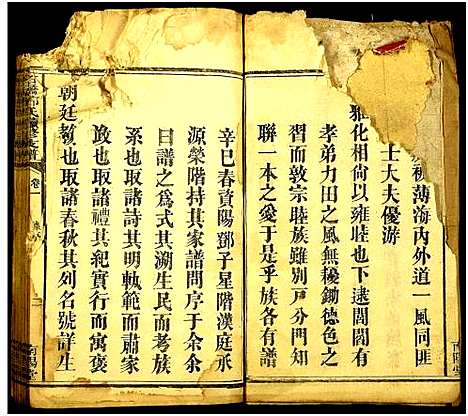 薄海內外道一風同匪
士大夫優游
雅化相尙以雍睦也下逮閭閻有
孝弟力田之風無耰鋤德色之
習而敦宗睦族雖別戶分門知
聯一本之愛于是乎族各有譜
辛巳春資陽鄧子星階漢庭承
源榮階持其家譜問序于余余
曰譜之為式其溯生民而考族
系也取諸詩其明軌範而肅家
教也取諸禮其紀實行而寓褒
朝廷
也取諸春秋其列名號詳生
氏
支譜
卷
南陽堂